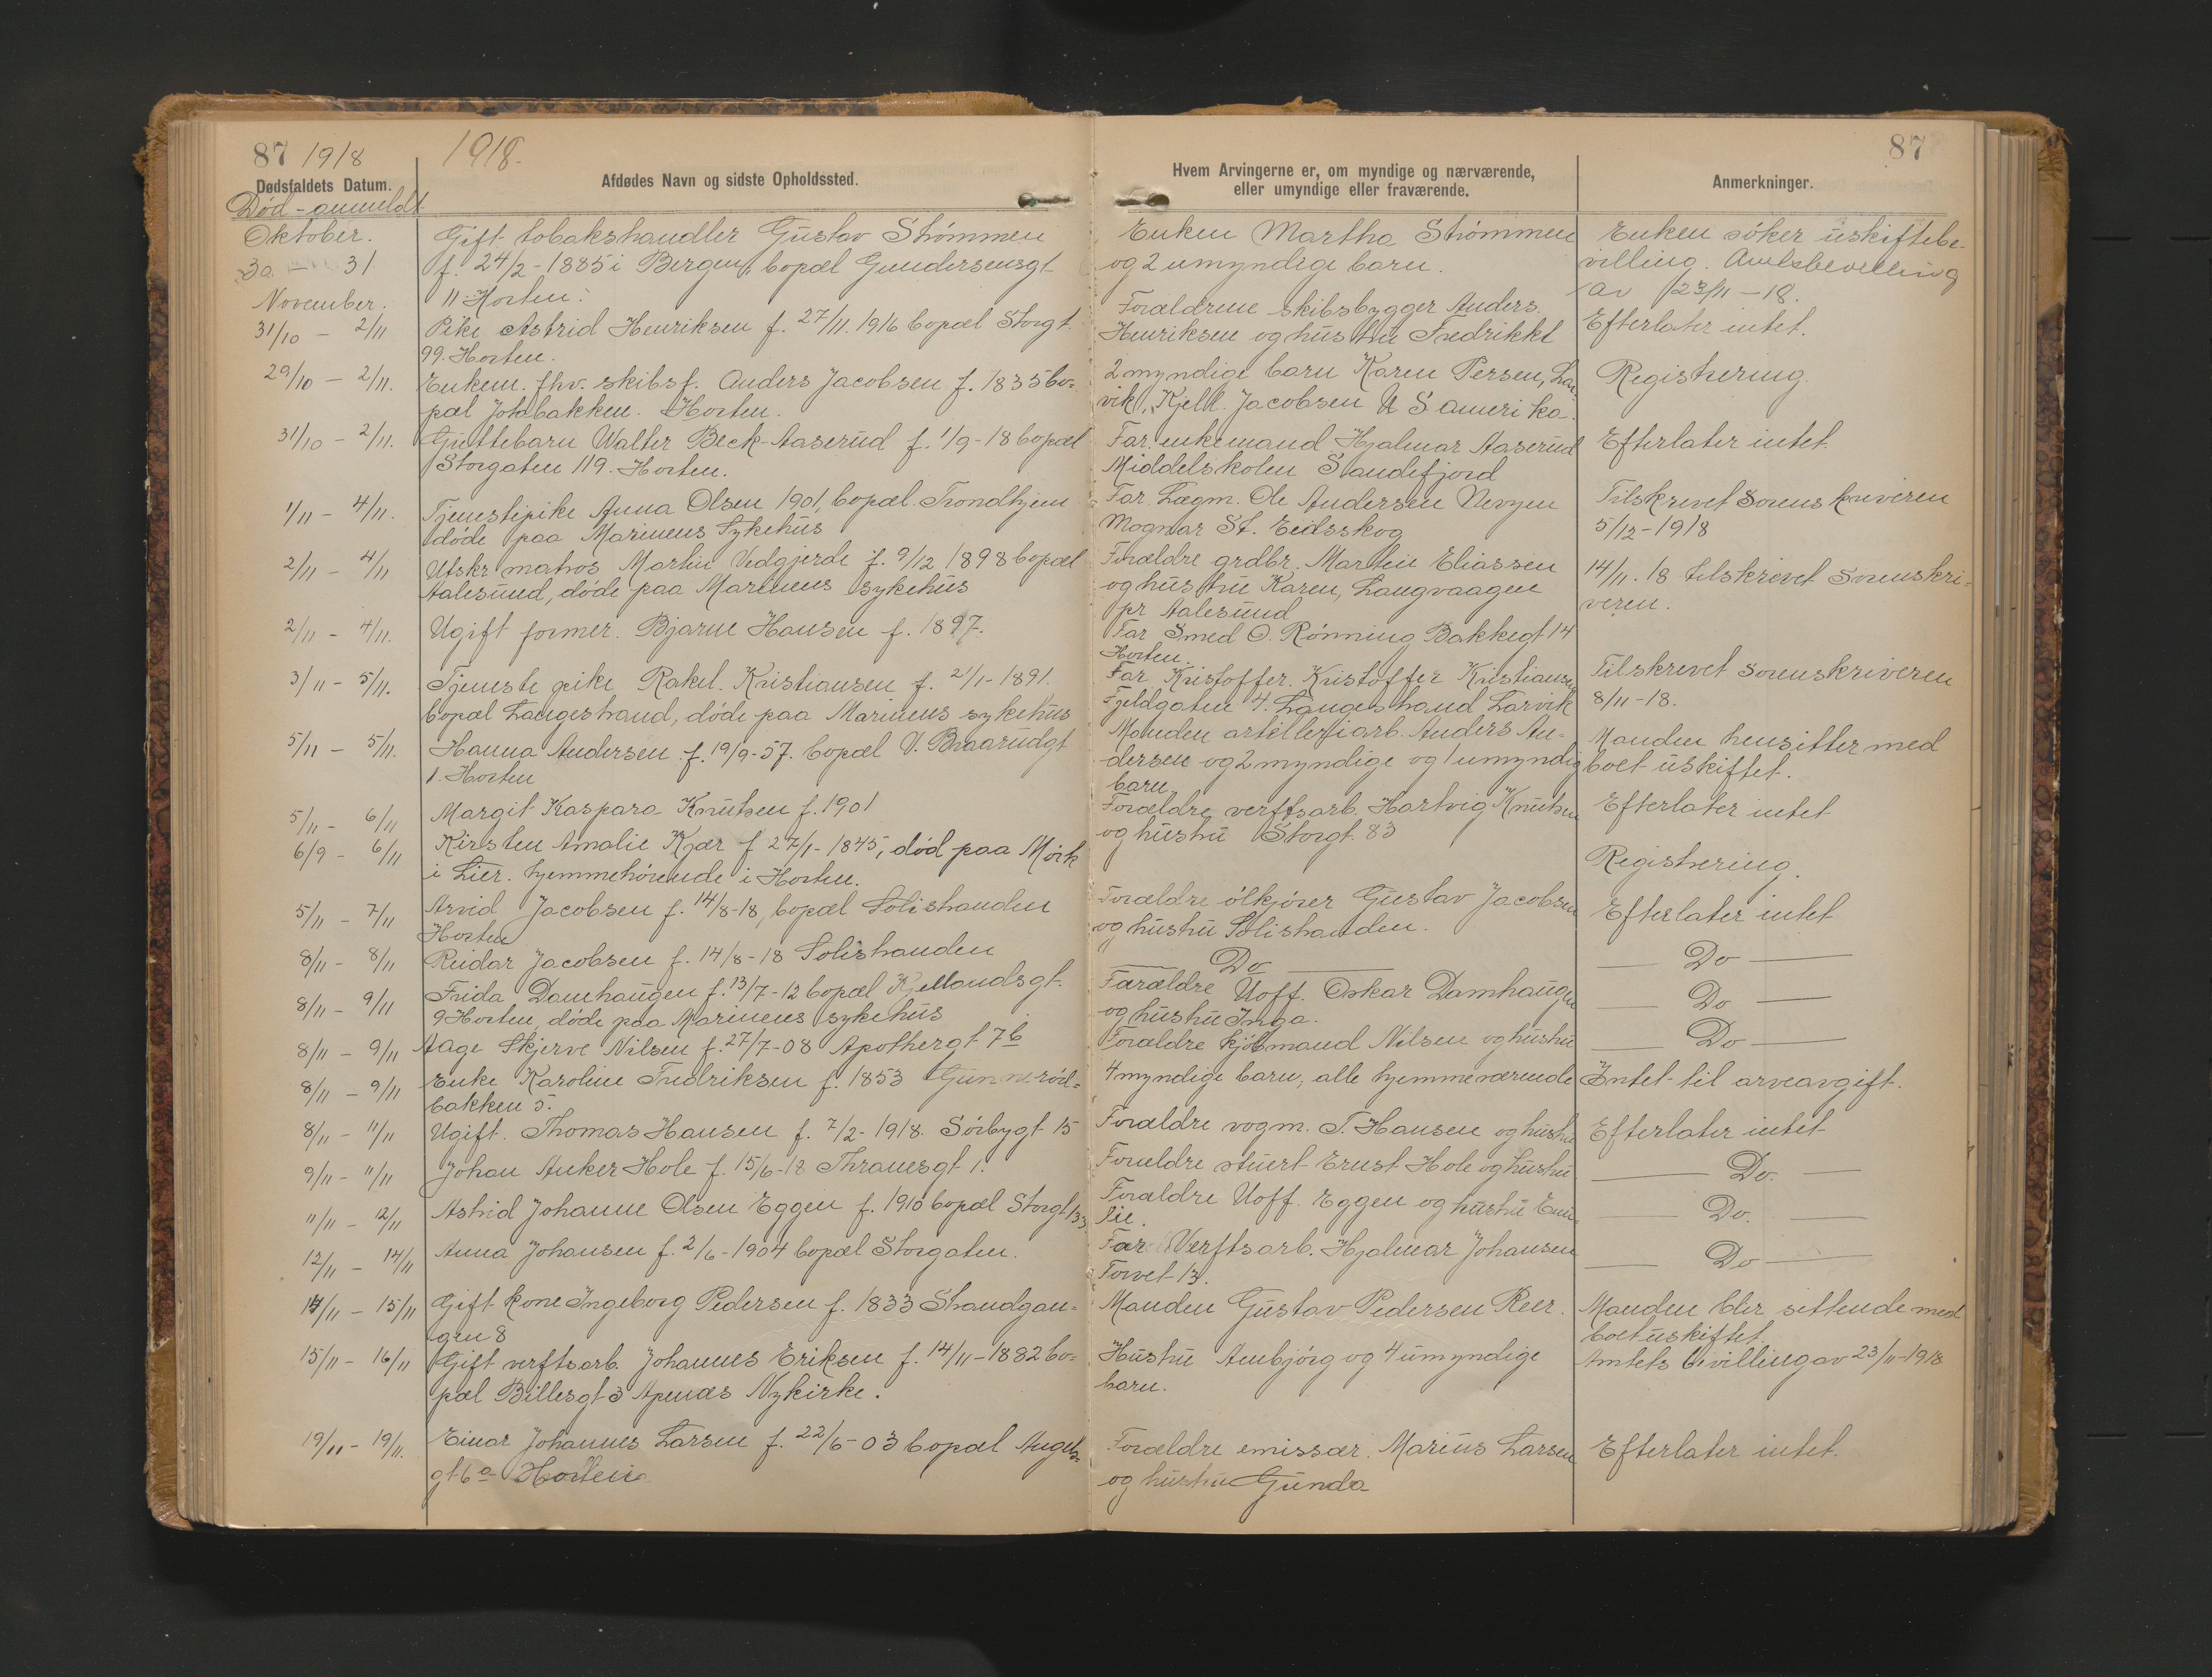 87 1918
1918.
87
Dødsfaldets Datum.
Afdødes Navn og sidste Opholdssted.
Hvem Arvingerne er, om myndige og nærværende,
eller umyndige eller fraværende.
Anmerkninger.
Død - anmeldt
Oktober.
30 - 31
Gift tobakshandler Gustav Strømmen
f. 24/2 - 1885 i Bergen, bopæl Gundersensgt
11 Horten.
Enken Martha Strømmen
og 2 umyndige barn.
Enken söker uskiftebe-
villing. Amtsbevilling
av 23/11 - 18.
November.
31/10 - 2/11
Pike Astrid Henriksen f. 27/11. 1916 bopæl Storgt.
99. Horten.
Forældrene skibsbygger Anders
Henriksen og hustru Fredrikke
Efterlater intet.
29/10 - 2/11.
Enkem. fhv. skibsf. Anders Jacobsen f. 1835 bo-
pæl Jotabakken. Horten.
2 myndige barn Karen Persen, Lar-
vik, Kjell. Jacobsen U S amerika.
Registrering.
31/10 - 2/11.
Guttebarn Walter Beck-Aaserud f. 1/9 - 18 bopæl
Storgaten 119. Horten.
Far enkemand Hjalmar Aaserud
Middelskolen Sandefjord
Efterlater intet.
1/11 - 4/11.
Tjenestepike Anna Olsen 1901, bopæl Trondhjem
döde paa Marinens Sykehus
Far Lægm. Ole Andersen
Magnor St. Eidsskog
Tilskrevet Sorenskriveren
5/12 - 1918
2/11 - 4/11
Utskr matros Martin Vedgjerde f. 9/12 1898 bopæl
Aalesund, döde paa Marinens sykehus
Forældre grdbr. Martin Eliassen
og hustru Karen, Langvaagen
pr Aalesund
14/11. 18 tilskrevet Sorenskri-
veren.
2/11 - 4/11.
Ugift former. Bjarne Hansen f. 1897.
Far Smed O. Rönning Bakkegt 14
Horten.
3/11 - 5/11.
Tjeneste pike Rakel. Kristiansen f. 21/1 - 1891.
bopæl Langestrand, döde paa Marinens sykehus
Far Kristoffer. Kristoffer Kristiansen
Fjeldgaten 4. Langestrand Larvik
Tilskrevet sorenskriveren
8/11 - 18.
5/11 - 5/11.
Hanna Andersen f. 19/9 - 57. bopæl V. Braarudgt
1. Horten
Manden artilleriarb. Anders An-
dersen og 2 myndige og 1 umyndig
barn.
Manden hensitter med
boet uskiftet.
5/11 - 6/11
Margit Kaspara Knutsen f. 1901
Forældre verftsarb. Hartvig Knutsen
og hustru Storgt. 83
Efterlater intet
6/9 - 6/11
Kirsten Amalie Kjær f 27/1 - 1845, död paa Mörk
i Lier. hjemmehörende i Horten.
Registrering.
5/11 - 7/11
Arvid Jacobsen f. 14/8 - 18, bopæl Solistranden
Horten
Forældre ölkjörer Gustav Jacobsen
og hustru Solistranden.
Efterlater intet
8/11 - 8/11
Reidar Jacobsen f. 14/8 - 18 Solistranden
Do
Do
8/11 - 9/11
Frida Damhaugen f. 13/7 - 12 bopæl Kjellandsgt.
9 Horten, döde paa Marinens sykehus
Forældre Uoff. Oskar Damhaugen
og hustru Inga.
Do
8/11 - 9/11
Aage Skjerve Nilsen f. 27/7 - 08 Apothergt 7b
Forældre kjöbmand Nilsen og hustru
Do
8/11 - 9/11
Enke Karoline Fredriksen f. 1853 Gunneröd-
bakken 5.
4 myndige barn, alle hjemmeværende
Intet til arveavgift.
8/11 - 11/11
Ugift. Thomas Hansen f. 7/2 - 1918. Sörbygt 15
Forældre vogm. T. Hansen og hustru
Efterlater intet
9/11 - 11/11
Johan Anker Hole f. 15/6 - 18 Thranesgt 1.
Forældre stuert Ernst Hole og hustru
Do.
11/11 - 12/11
Astrid Johanne Olsen Eggen f. 1910 bopæl Storgt 133
Forældre Uoff. Eggen og hustru Emi-
lie.
Do.
12/11 - 14/11
Anna Johansen f. 2/6 - 1904 bopæl Storgaten.
Far Verftsarb. Hjalmar Johansen
Torvet 13.
Do
14/11 - 15/11
Gift kone Ingeborg Pedersen f. 1833 Strandgan-
gen 8
Manden Gustav Pedersen Reer.
Manden blir sittende med
boet uskiftet.
15/11 - 16/11
Gift verftsarb. Johannes Eriksen f. 14/11 - 1882 bo-
pæl Billesgt 3 Apenæs Nykirke.
Hustru Ambjörg og 4 umyndige
barn.
Amtets bevilling av 23/11 - 1918
19/11 - 19/11.
Einar Johannes Larsen f. 22/6 - 03 bopæl Augels
gt 6a Horten
Forældre emissær. Marius Larsen
og hustru Gunda
Efterlater intet.